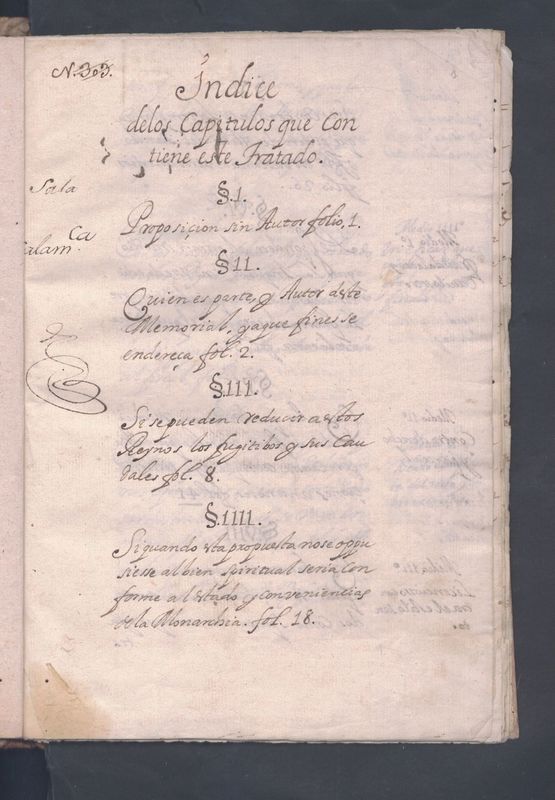 N. 303.
Índice
delos Capitulos que Con
tiene este Tratado.
Sala
Ca
alam.ca
§.1.
Proposicion sin Autor folio, 1.
§11.
Quien es parte, y Autor deste
Memorial, y aque fines se
endereça fol. 2.
§.111.
Si se pueden reducir aestos
Reynos los fugitibos y sus Cau
dales fol. 8.
§.1111.
Si quando esta propuesta nose oppu
siesse al bien spiritual seria Con
forme al Estado y conveniencias
de la Monarchia. fol. 18.